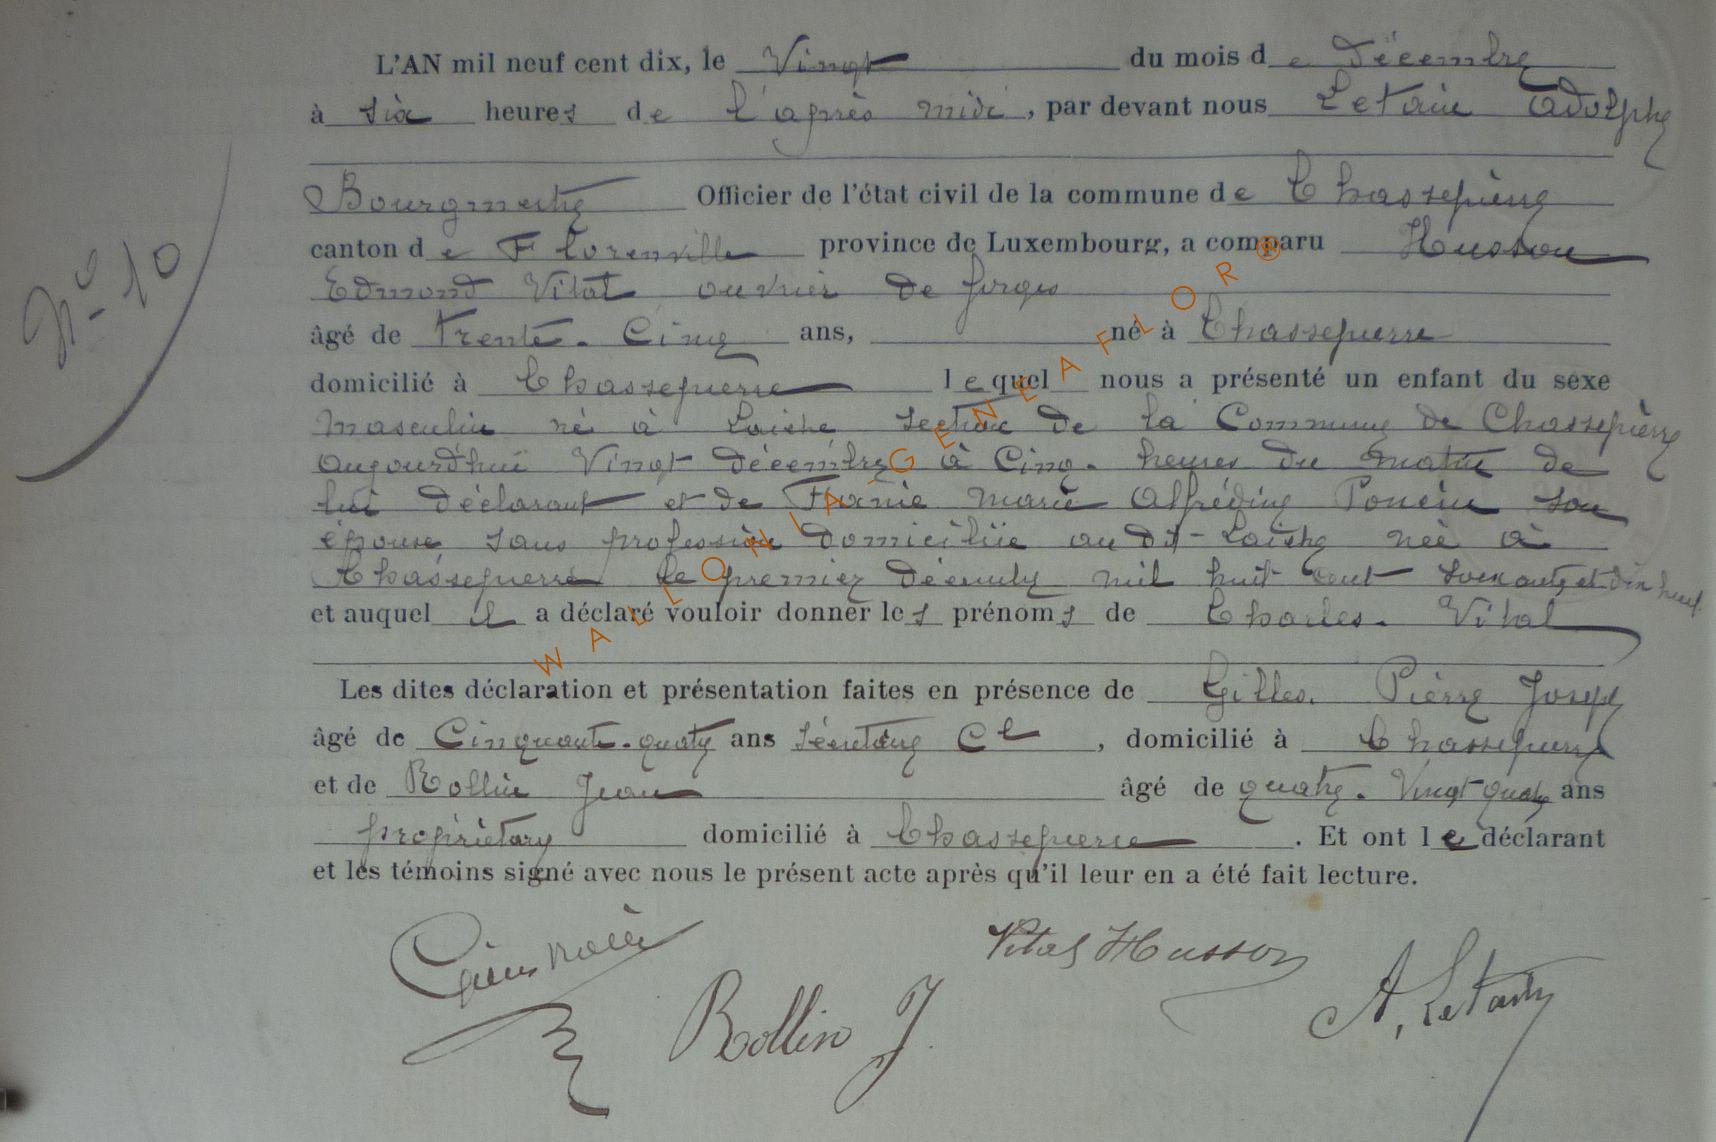 L'AN mil neuf cent dix, le Vingt du mois de décembre
à six heures de l'après midi, par devant nous Letain Adolphe
Bourgmestre Officier de l'état civil de la commune de Chassepierre
Nº 10
canton de Florenville province de Luxembourg, a comparu Husson
Edmond Vital ouvrier de forges
âgé de trente-Cinq ans, né à Chassepierre
domicilié à Chassepierre lequel nous a présenté un enfant du sexe
masculin né à Laiche section de la Commune de Chassepierre
aujourd'hui Vingt décembre à Cinq heures du matin de
lui déclarant et de Marie Alfrédine Poncin son
épouse sans profession domiciliée au dit-Laiche née à
Chassepierre le premier décembre mil huit cent soixante et dix neuf
et auquel il a déclaré vouloir donner les prénoms de Charles. Vital
Les dites déclaration et présentation faites en présence de Gilles. Pierre Joseph
âgé de Cinquante-quatre ans secrétaire Cl, domicilié à Chassepierre
et de Rollin Jean âgé de quatre-Vingt quatre ans
propriétaire domicilié à Chassepierre. Et ont le déclarant
et les témoins signé avec nous le présent acte après qu'il leur en a été fait lecture.
Vital Husson
Rollin J.
A. Letain
WALLONIA-GENEAFLOR®